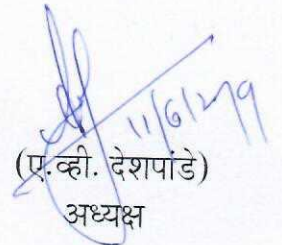 11/6/2019
(ए.व्ही. देशपांडे)
अध्यक्ष